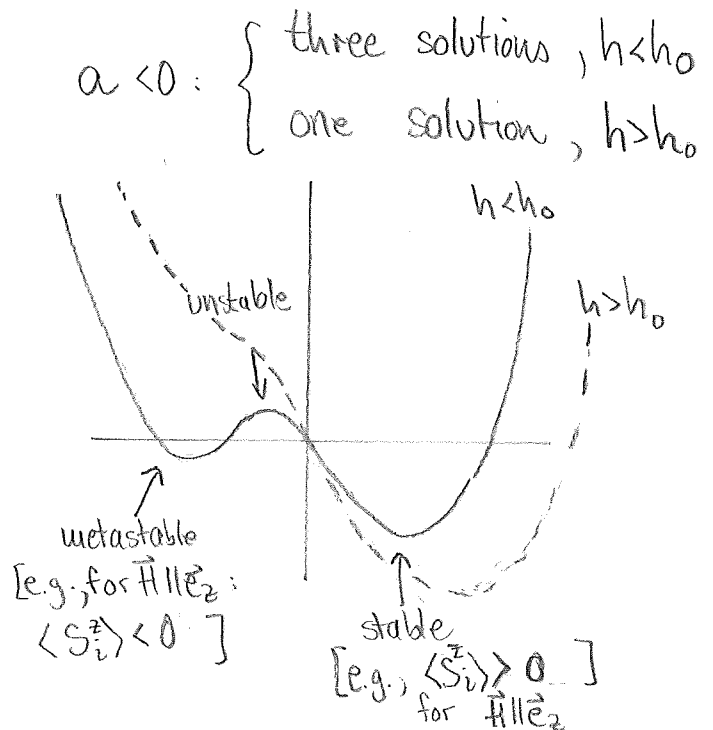 a < 0 : { three solutions , h < h₀
one solution , h > h₀
h < h₀
unstable
h > h₀
metastable
[e.g., for H⃗ || e⃗_z :
⟨S_i^z⟩ < 0 ]
stable
[e.g., ⟨S_i^z⟩ > 0 ]
for H⃗ || e⃗_z